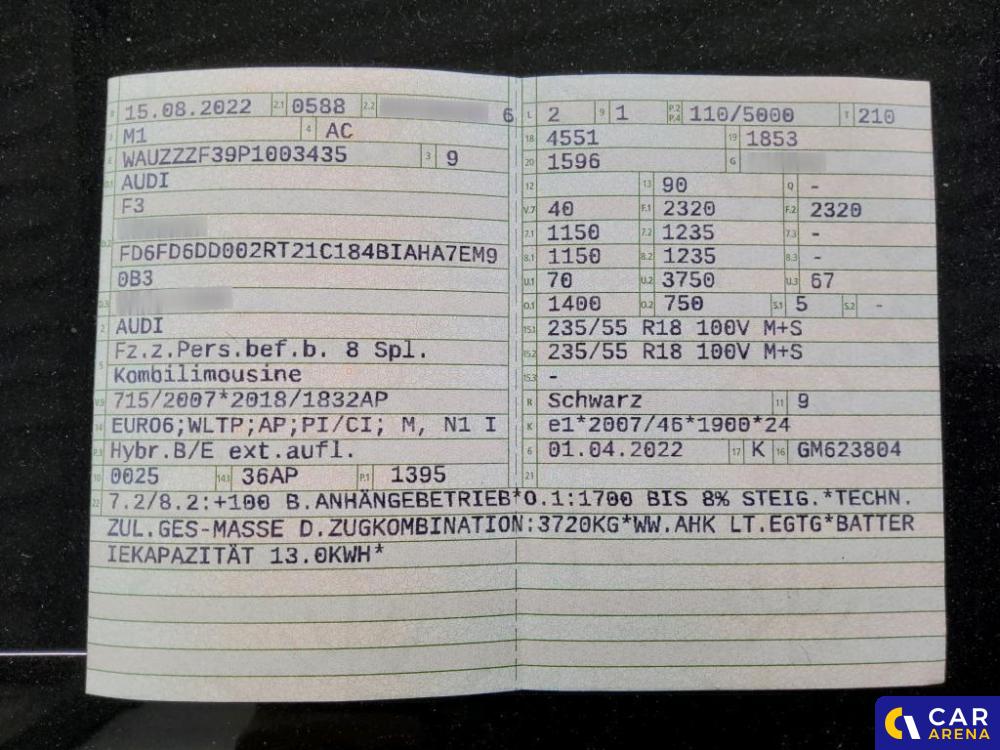 B 15.08.2022 2.1 0588 2.2 6
J M1 4 AC
E WAUZZZF39P1003435 3 9
D.1 AUDI
F3
D.2
FD6FD6DD002RT21C184BIAHA7EM9
0B3
D.3
2 AUDI
5 Fz.z.Pers.bef.b. 8 Spl.
Kombilimousine
V.9 715/2007*2018/1832AP
14 EURO6;WLTP;AP;PI/CI; M, N1 I
P.3 Hybr.B/E ext.aufl.
10 0025 14.1 36AP P.1 1395
L 2 9 1 P.2 P.4 110/5000 T 210
18 4551 19 1853
20 1596 G
12 13 90 Q -
V.7 40 F.1 2320 F.2 2320
7.1 1150 7.2 1235 7.3 -
8.1 1150 8.2 1235 8.3 -
U.1 70 U.2 3750 U.3 67
O.1 1400 O.2 750 S.1 5 S.2 -
15.1 235/55 R18 100V M+S
15.2 235/55 R18 100V M+S
15.3 -
R Schwarz 11 9
K e1*2007/46*1900*24
6 01.04.2022 17 K 16 GM623804
21
22 7.2/8.2:+100 B.ANHÄNGEBETRIEB*O.1:1700 BIS 8% STEIG.*TECHN.
ZUL.GES-MASSE D.ZUGKOMBINATION:3720KG*WW.AHK LT.EGTG*BATTER
IEKAPAZITÄT 13.0KWH*
CAR
ARENA